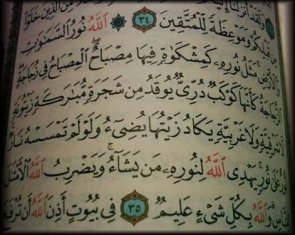 مِن قَبْلِكُمْ وَمَوْعِظَةً لِّلْمُتَّقِينَ ٣٤ ۞ ٱللَّهُ نُورُ ٱلسَّمَٰوَٰتِ
وَٱلْأَرْضِ مَثَلُ نُورِهِۦ كَمِشْكَوٰةٍ فِيهَا مِصْبَاحٌ ٱلْمِصْبَاحُ فِى زُجَاجَةٍ
ٱلزُّجَاجَةُ كَأَنَّهَا كَوْكَبٌ دُرِّىٌّ يُوقَدُ مِن شَجَرَةٍ مُّبَٰرَكَةٍ زَيْتُونَةٍ
لَّا شَرْقِيَّةٍ وَلَا غَرْبِيَّةٍ يَكَادُ زَيْتُهَا يُضِىٓءُ وَلَوْ لَمْ تَمْسَسْهُ نَارٌ
نُّورٌ عَلَىٰ نُورٍ يَهْدِى ٱللَّهُ لِنُورِهِۦ مَن يَشَآءُ وَيَضْرِبُ ٱللَّهُ ٱلْأَمْثَٰلَ
لِلنَّاسِ وَٱللَّهُ بِكُلِّ شَىْءٍ عَلِيمٌ ٣٥ فِى بُيُوتٍ أَذِنَ ٱللَّهُ أَن تُرْفَعَ